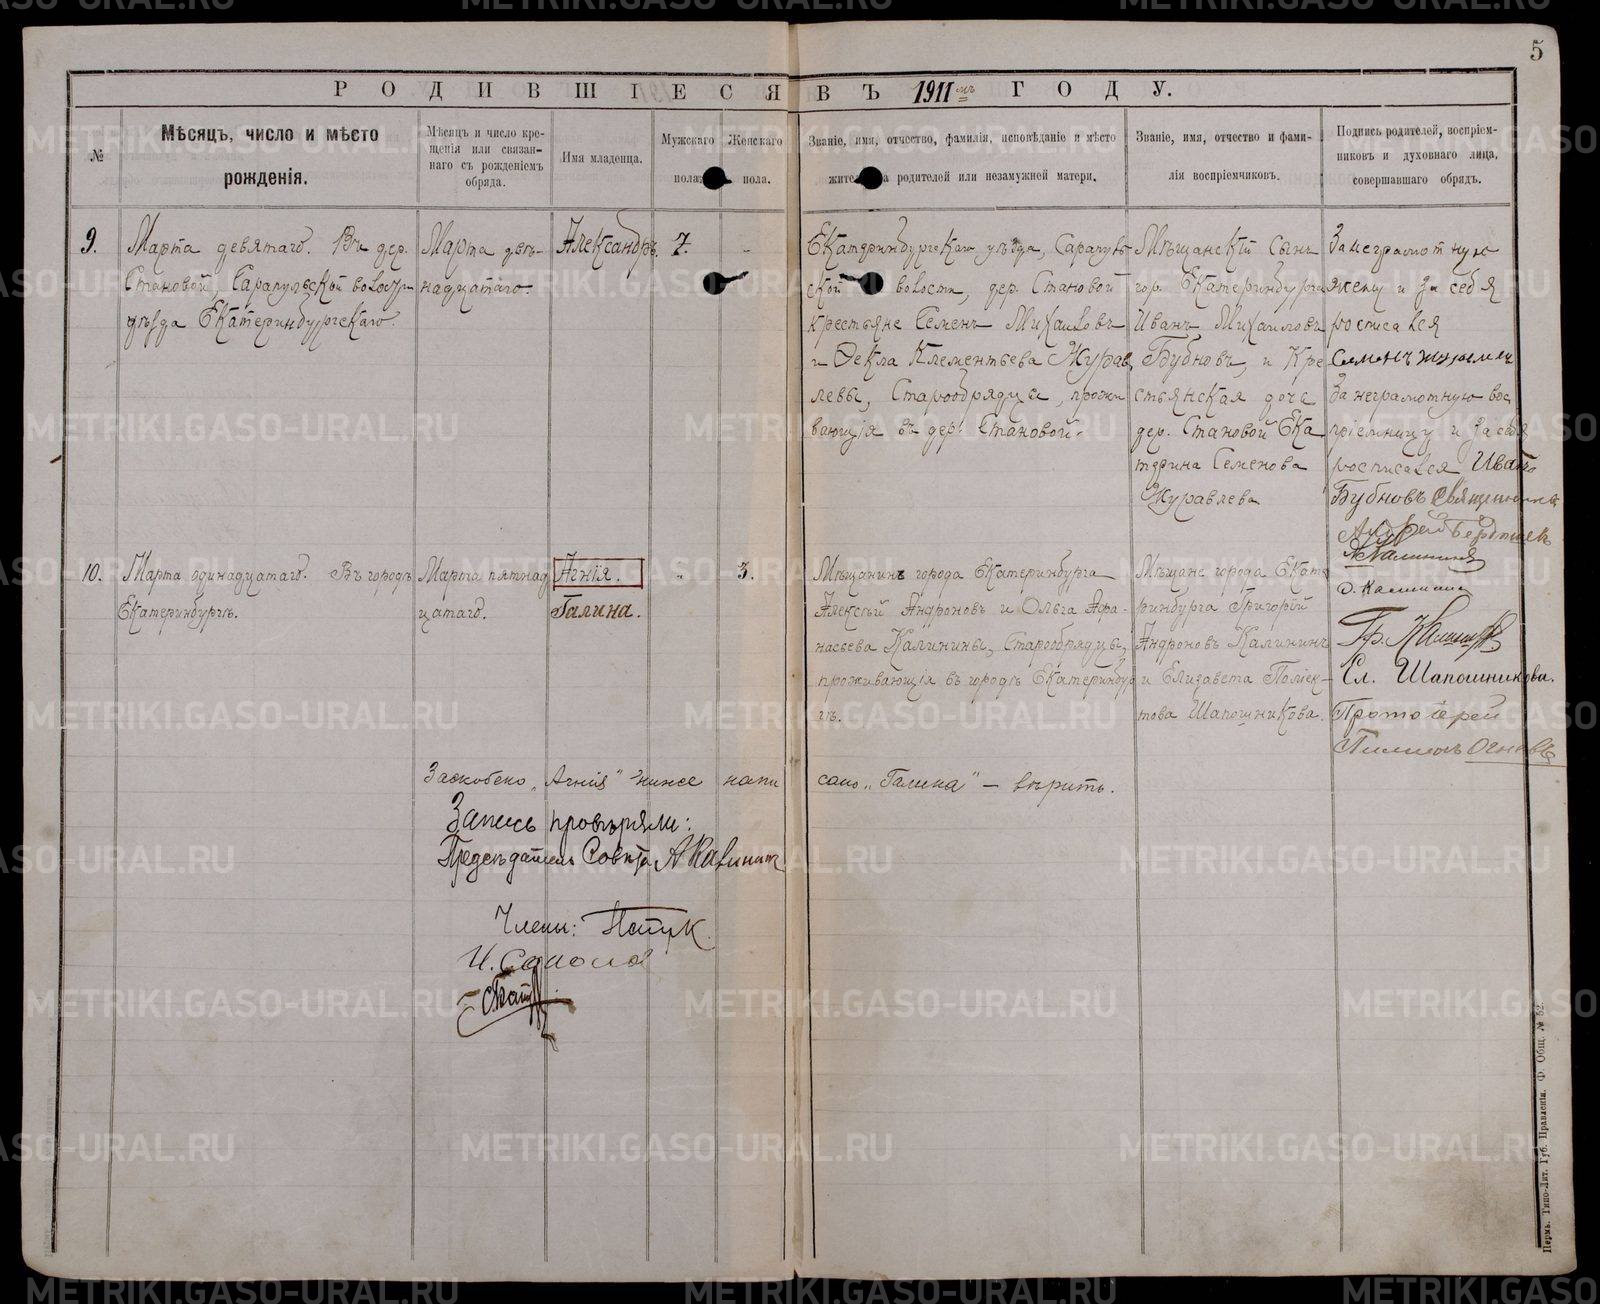 5
РОДИВШІЕСЯ ВЪ 1911мъ ГОДУ.
№
Мѣсяцъ, число и мѣсто
рожденія.
Мѣсяцъ и число кре-
щенія или связан-
наго съ рожденіемъ
обряда.
Имя младенца.
Мужскаго
пола.
Женскаго
пола.
Званіе, имя, отчество, фамилія, исповѣданіе и мѣсто
жител а родителей или незамужней матери.
Званіе, имя, отчество и фами-
лія воспріемчиковъ.
Подпись родителей, воспріем-
никовъ и духовнаго лица,
совершавшаго обрядъ.
9.
Марта девятаго. Въ дер.
Становой, Сарапульской волости
уѣзда Екатеринбургскаго.
Марта двѣ-
надцатаго.
Александръ
7.
-
Екатеринбургскаго уѣзда, Сарапуль
ской волости, дер. Становой
крестьяне Семенъ Михаиловъ
и Ѳекла Клементьева Журав
левы, Старообрядцы, прожи
вающія въ дер. Становой.
Мѣщанскій Сынъ
гор. Екатеринбурга
Иванъ Михаиловъ
Бубновъ, и Кре
стьянская дочь
дер. Становой Ека
терина Семенова
Журавлева
За неграмотную
жену и за себя
росписался
Семенъ
За неграмотную вос
пріемницу и за себя
росписался Иванъ
Бубновъ Священникъ
10.
Марта одинадцатаго. Въ городѣ
Екатеринбургѣ.
Марта пятнад
цатаго.
Агнія.
Галина.
"
3.
Мѣщанинъ города Екатеринбурга
Алексѣй Андроновъ и Ольга Афа-
насьева Калинины, Старообрядцы,
проживающія въ городѣ Екатеринбур
гѣ.
Мѣщане города Екате
ринбурга Григорій
Андроновъ Калининъ
и Елизавета Полиек-
това Шапошникова.
А Калининъ
О. Калинина
Гр. Калининъ
Ел. Шапошникова.
Протоіерей
Заскоблено „Агнія" ниже напи
сано „Галина" — вѣрить.
Запись провѣряли:
Предсѣдатель Совѣта А Калининъ
Члены:
METRIKI.GASO-URAL.RU
Пермь. Типо-Лит. Губ. Правленія. Ф. Общ. № 62.